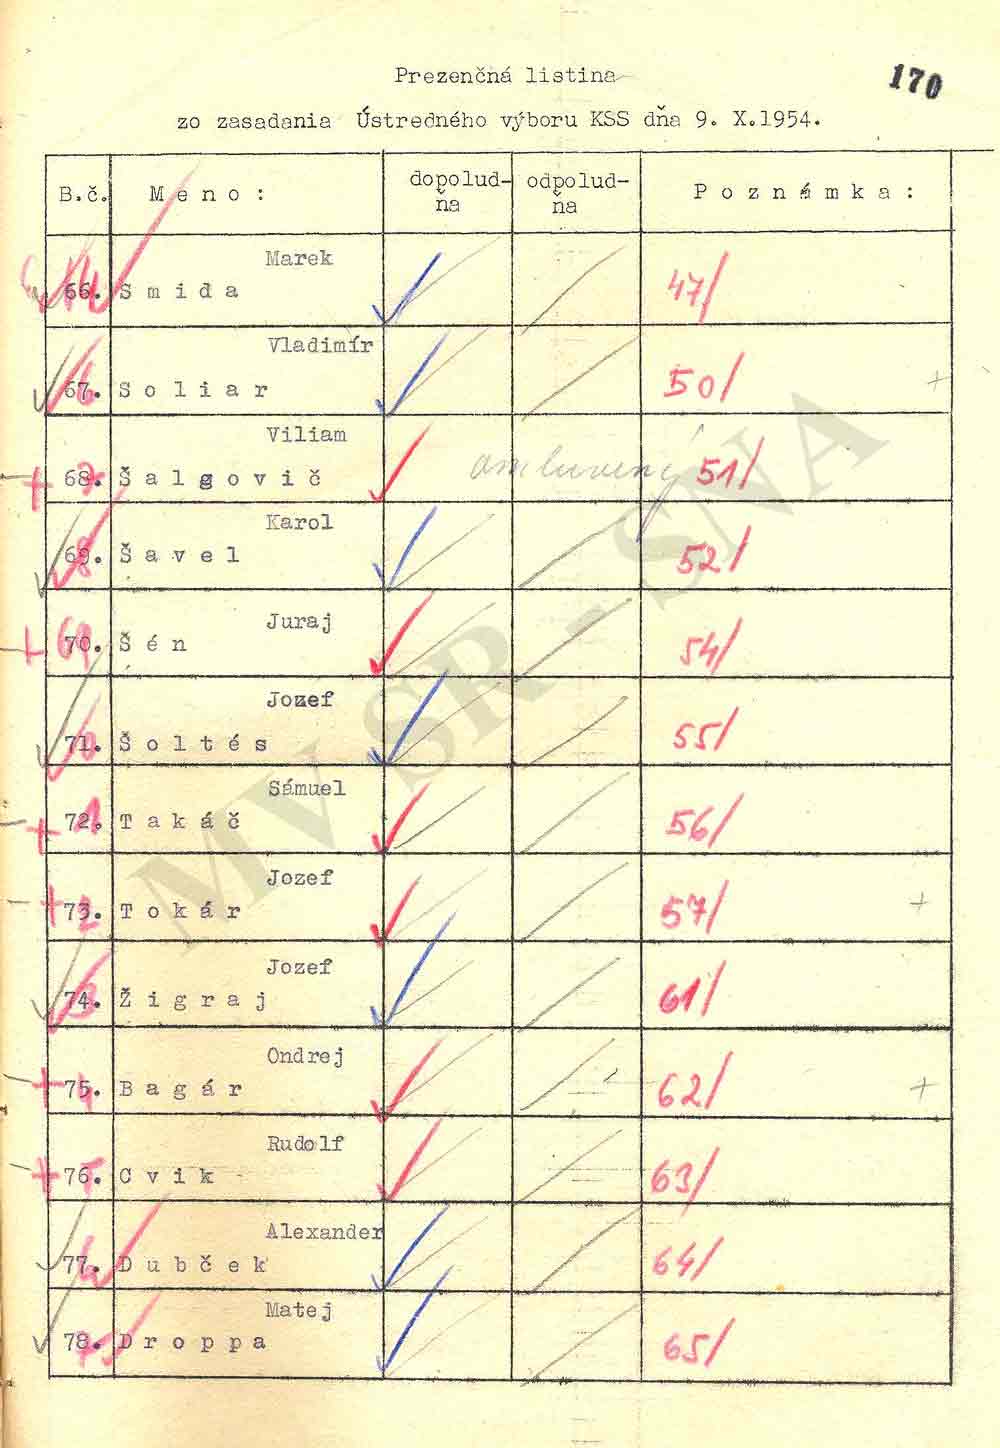 170
Prezenčná listina
zo zasadania Ústredného výboru KSS dňa 9. X.1954.
B.č. M e n o : dopolud-ňa odpolud-ňa P o z n á m k a :
Marek
66. S m i d a 47/
Vladimír
67. S o l i a r 50/ +
Viliam
+ 68. Š a l g o v i č omluvený 51/
Karol
69. Š a v e l 52/
Juraj
+ 70. Š é n 54/
Jozef
71. Š o l t é s 55/
Sámuel
+ 72. T a k á č 56/
Jozef
+ 73. T o k á r 57/ +
Jozef
74. Ž i g r a j 61/
Ondrej
+ 75. B a g á r 62/ +
Rudolf
+ 76. C v i k 63/
Alexander
77. D u b č e k 64/
Matej
78. D r o p p a 65/
MV SR - SNA